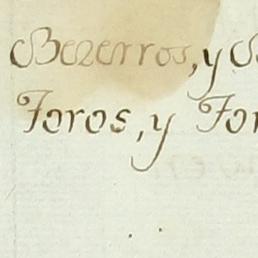 Bezerros, y
Toros, y